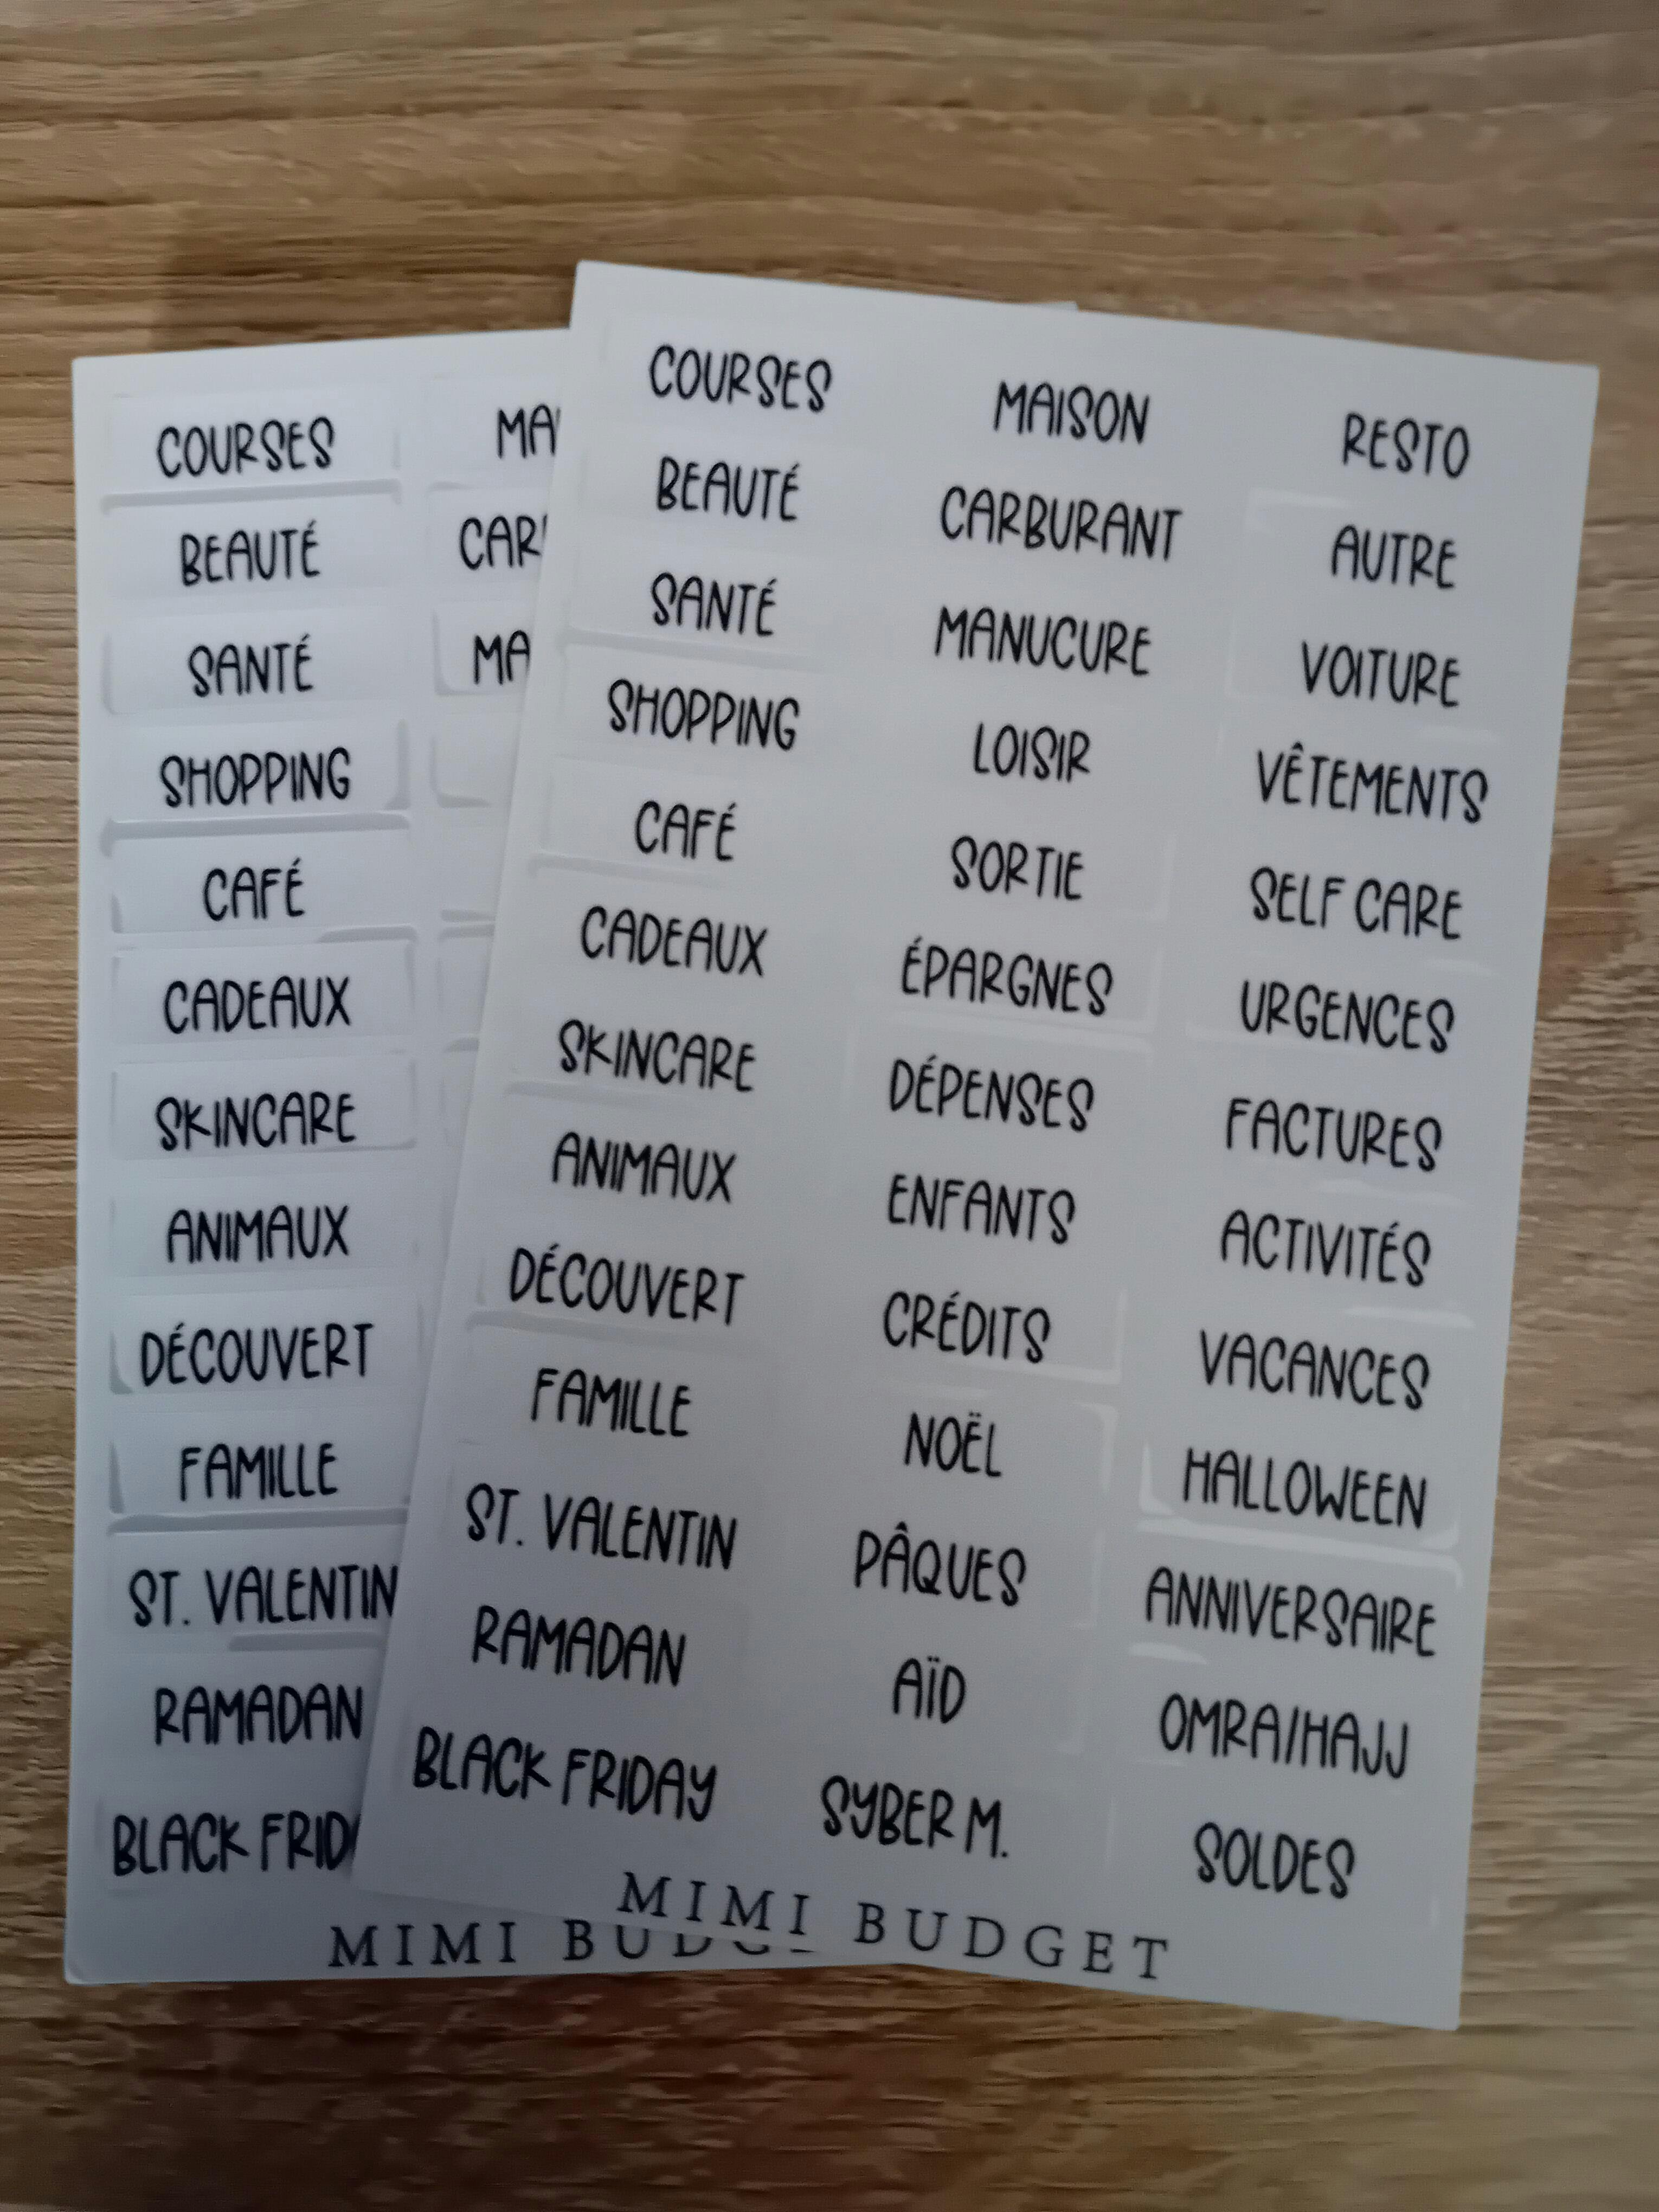 COURSES MAISON RESTO
BEAUTÉ CARBURANT AUTRE
SANTÉ MANUCURE VOITURE
SHOPPING LOISIR VÊTEMENTS
CAFÉ SORTIE SELF CARE
CADEAUX ÉPARGNES URGENCES
SKINCARE DÉPENSES FACTURES
ANIMAUX ENFANTS ACTIVITÉS
DÉCOUVERT CRÉDITS VACANCES
FAMILLE NOËL HALLOWEEN
ST. VALENTIN PÂQUES ANNIVERSAIRE
RAMADAN AÏD OMRA/HAJJ
BLACK FRIDAY SYBER M. SOLDES
MIMI BUDGET
COURSES
BEAUTÉ
SANTÉ
SHOPPING
CAFÉ
CADEAUX
SKINCARE
ANIMAUX
DÉCOUVERT
FAMILLE
ST. VALENTIN
RAMADAN
BLACK
MIMI